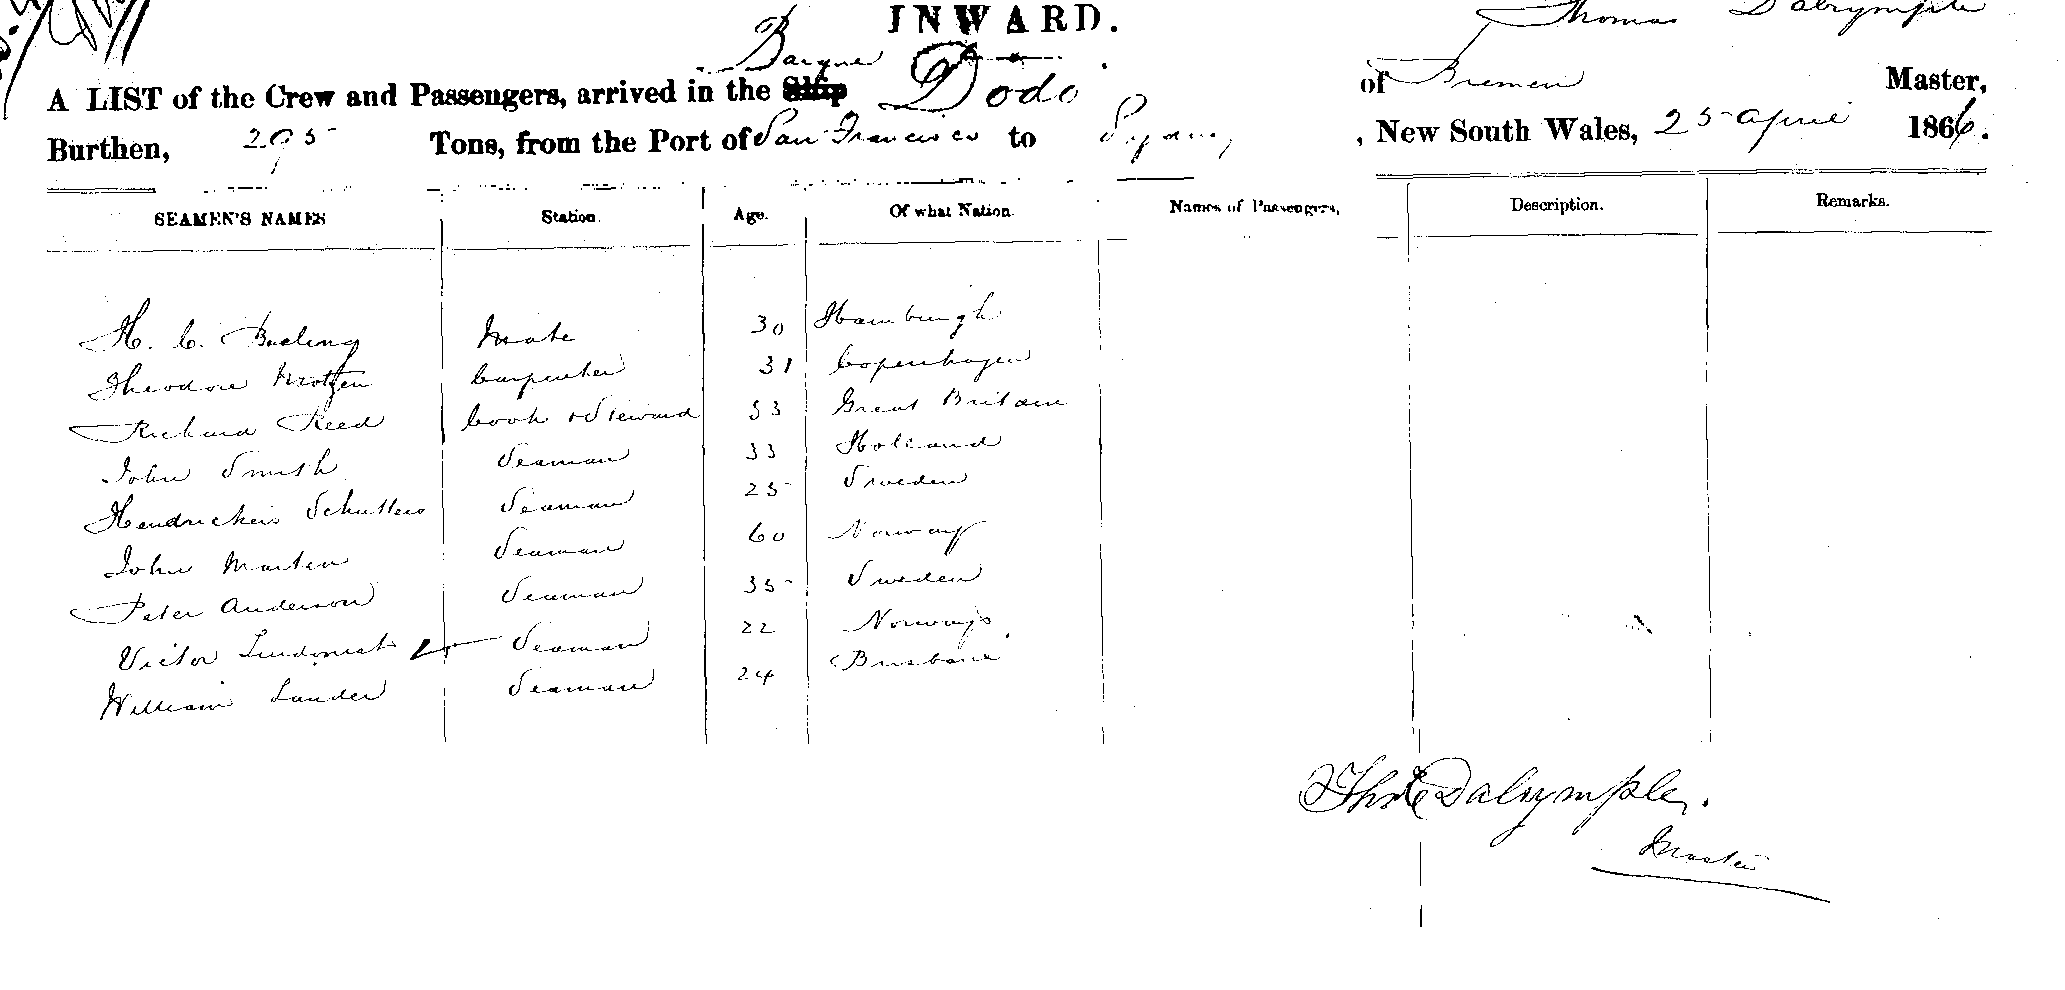 INWARD.
Thomas Dalrymple
Barque
A LIST of the Crew and Passengers, arrived in the Ship Dodo of Bremen Master,
Burthen, 295 Tons, from the Port of San Francisco to Sydney, New South Wales, 25 April 1866.
SEAMEN'S NAMES Station. Age. Of what Nation. Names of Passengers, Description. Remarks.
H. C. Mate 30 Hamburgh
Theodore Carpenter 31 Copenhagen
Richard Reed Cook & Steward 53 Great Britain
John Smith Seaman 33 Holland
Seaman 25 Sweden
John Martin Seaman 60 Norway
Peter Anderson Seaman 35 Sweden
Victor Seaman 22 Norway
William Lander Seaman 24 Brisbane
Dalrymple.
Master